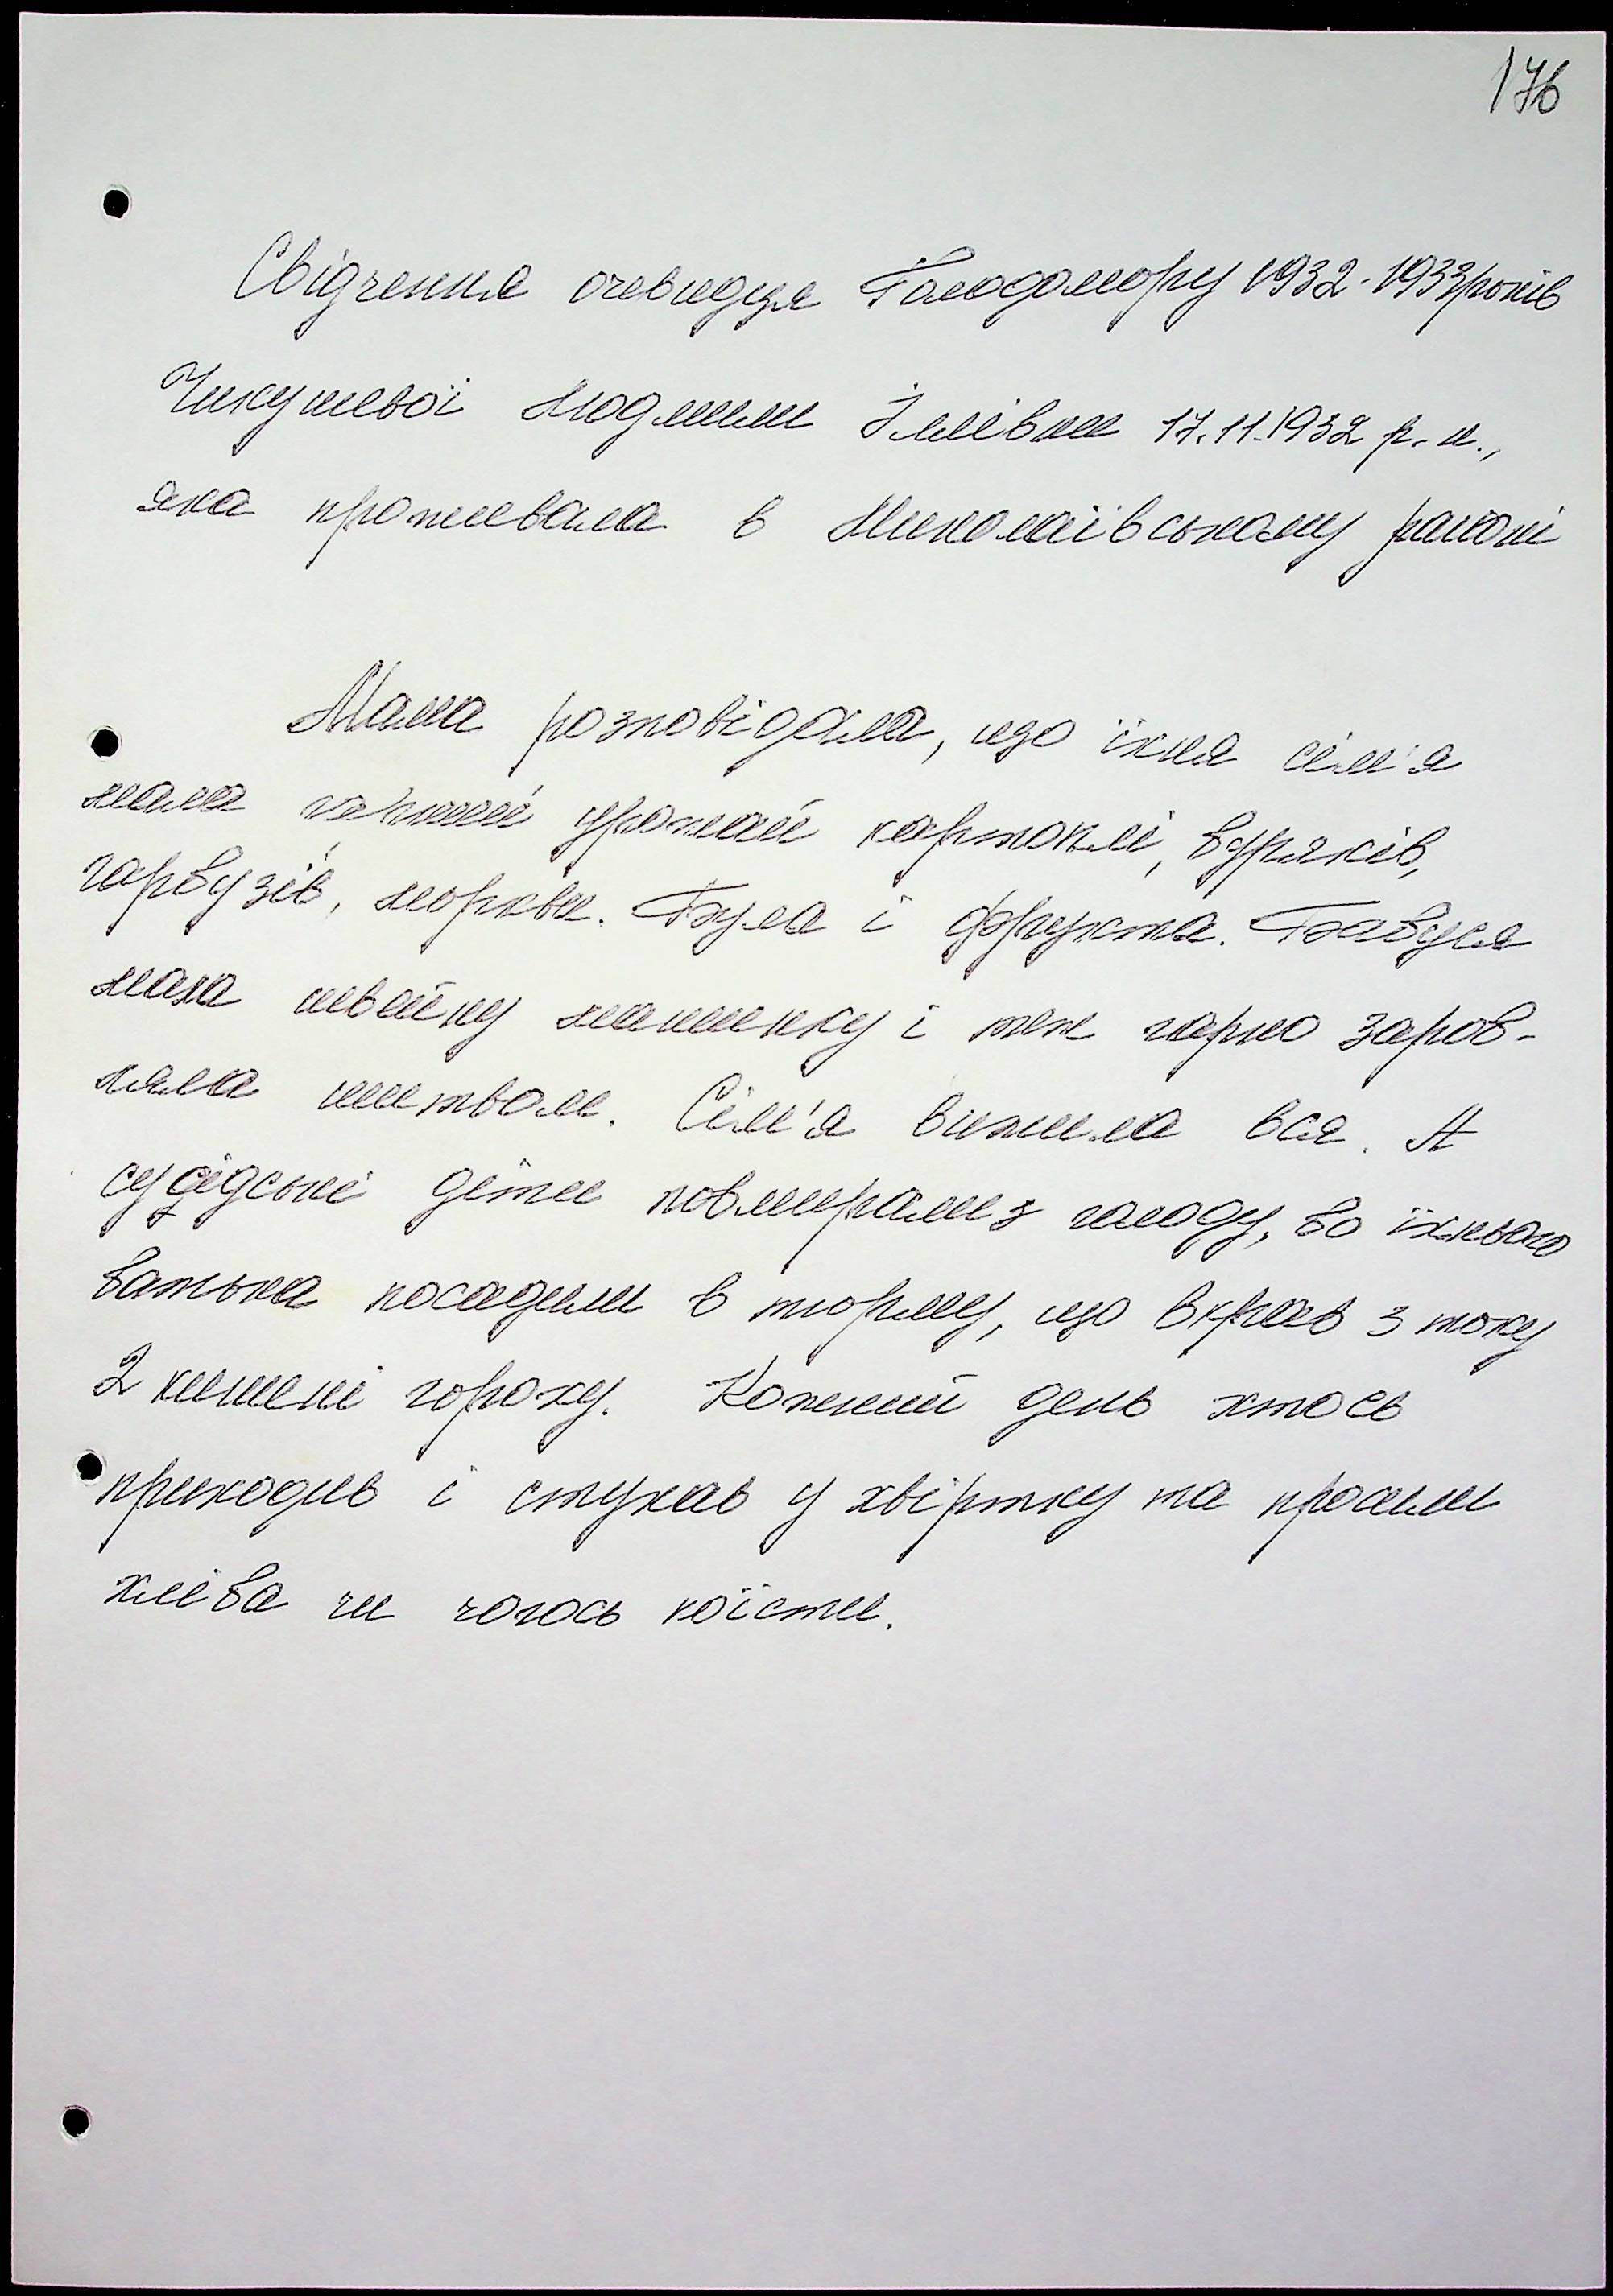 176
Свідчення очевидця Голодомору 1932-1933 років
Чикушевої Людмили Іллівни 17.11.1932 р.н.,
яка проживала в Миколаївському районі
Мама розповідала, що їхня сім'я
мала гарний урожай картоплі, буряків,
гарбузів, моркви. Було і фрукта. Бабуся
мала швейну машинку і теж гарно зароб-
ляла шитвом. Сім'я вижила вся. А
сусідські діти повмирали з голоду, бо їхнього
батька посадили в тюрму, що вкрав з току
2 кишені гороху. Кожний день хтось
приходив і стукав у хвіртку та просили
хліба чи чогось поїсти.